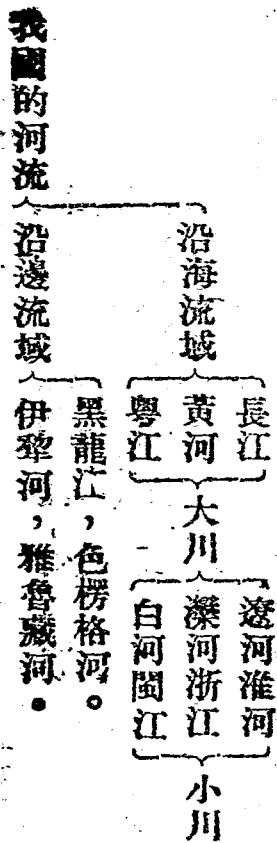 我國的河流
沿海流域
長江
黃河
粵江
大川
遼河淮河
灤河浙江
白河閩江
小川
沿邊流域
黑龍江，色楞格河。
伊犂河，雅魯藏河．